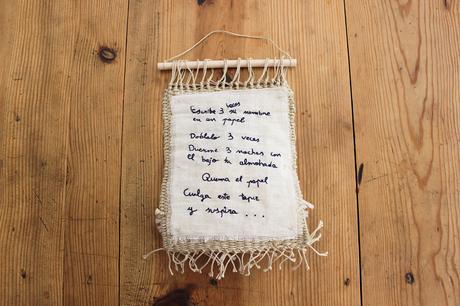 Escribe 3 veces su nombre
en un papel
Doblalo 3 veces
Duerme 3 noches con
él bajo tu almohada
Quema el papel
Cuelga este tapiz
y suspira ...